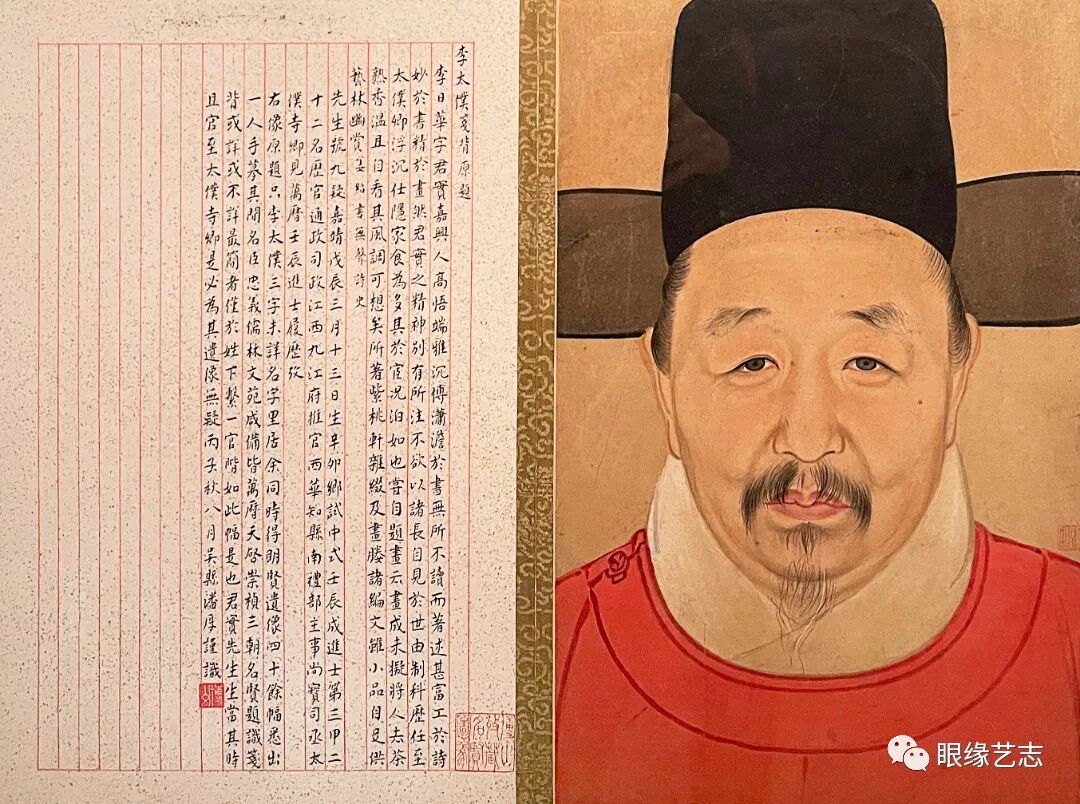 李太僕箋背原題
李日華字君實嘉興人高悟端雅沉博瀟澹於書無所不讀而著述甚富工於詩
妙於書精於畫然君實之精神別有所注不欲以諸長自見於世由制科歷任至
太僕卿浮沉仕隱家食為多其於宦况泊如也嘗自題畫云畫成未擬將人去茶
熟香溫且自看其風調可想矣所著紫桃軒雜綴及畫媵諸編文雖小品自足供
藝林幽賞姜紹書無聲詩史
先生號九疑嘉靖戊辰三月十三日生辛卯鄉試中式壬辰成進士第三甲二
十二名歷官通政司政江西九江府推官西華知縣南禮部主事尚寶司丞太
僕寺卿見萬曆壬辰進士履歷攷
右像原題只李太僕三字未詳名字里居余同時得明賢遺像四十餘幅悉出
一人手摹其間名臣忠義儒林文苑咸備皆萬曆天啓崇禎三朝名賢題識箋
背或詳或不詳最簡者僅於姓下繫一官階如此幅是也君實先生生當其時
且官至太僕寺卿是必為其遺像無疑丙子秋八月吳縣潘厚謹識
眼缘艺志